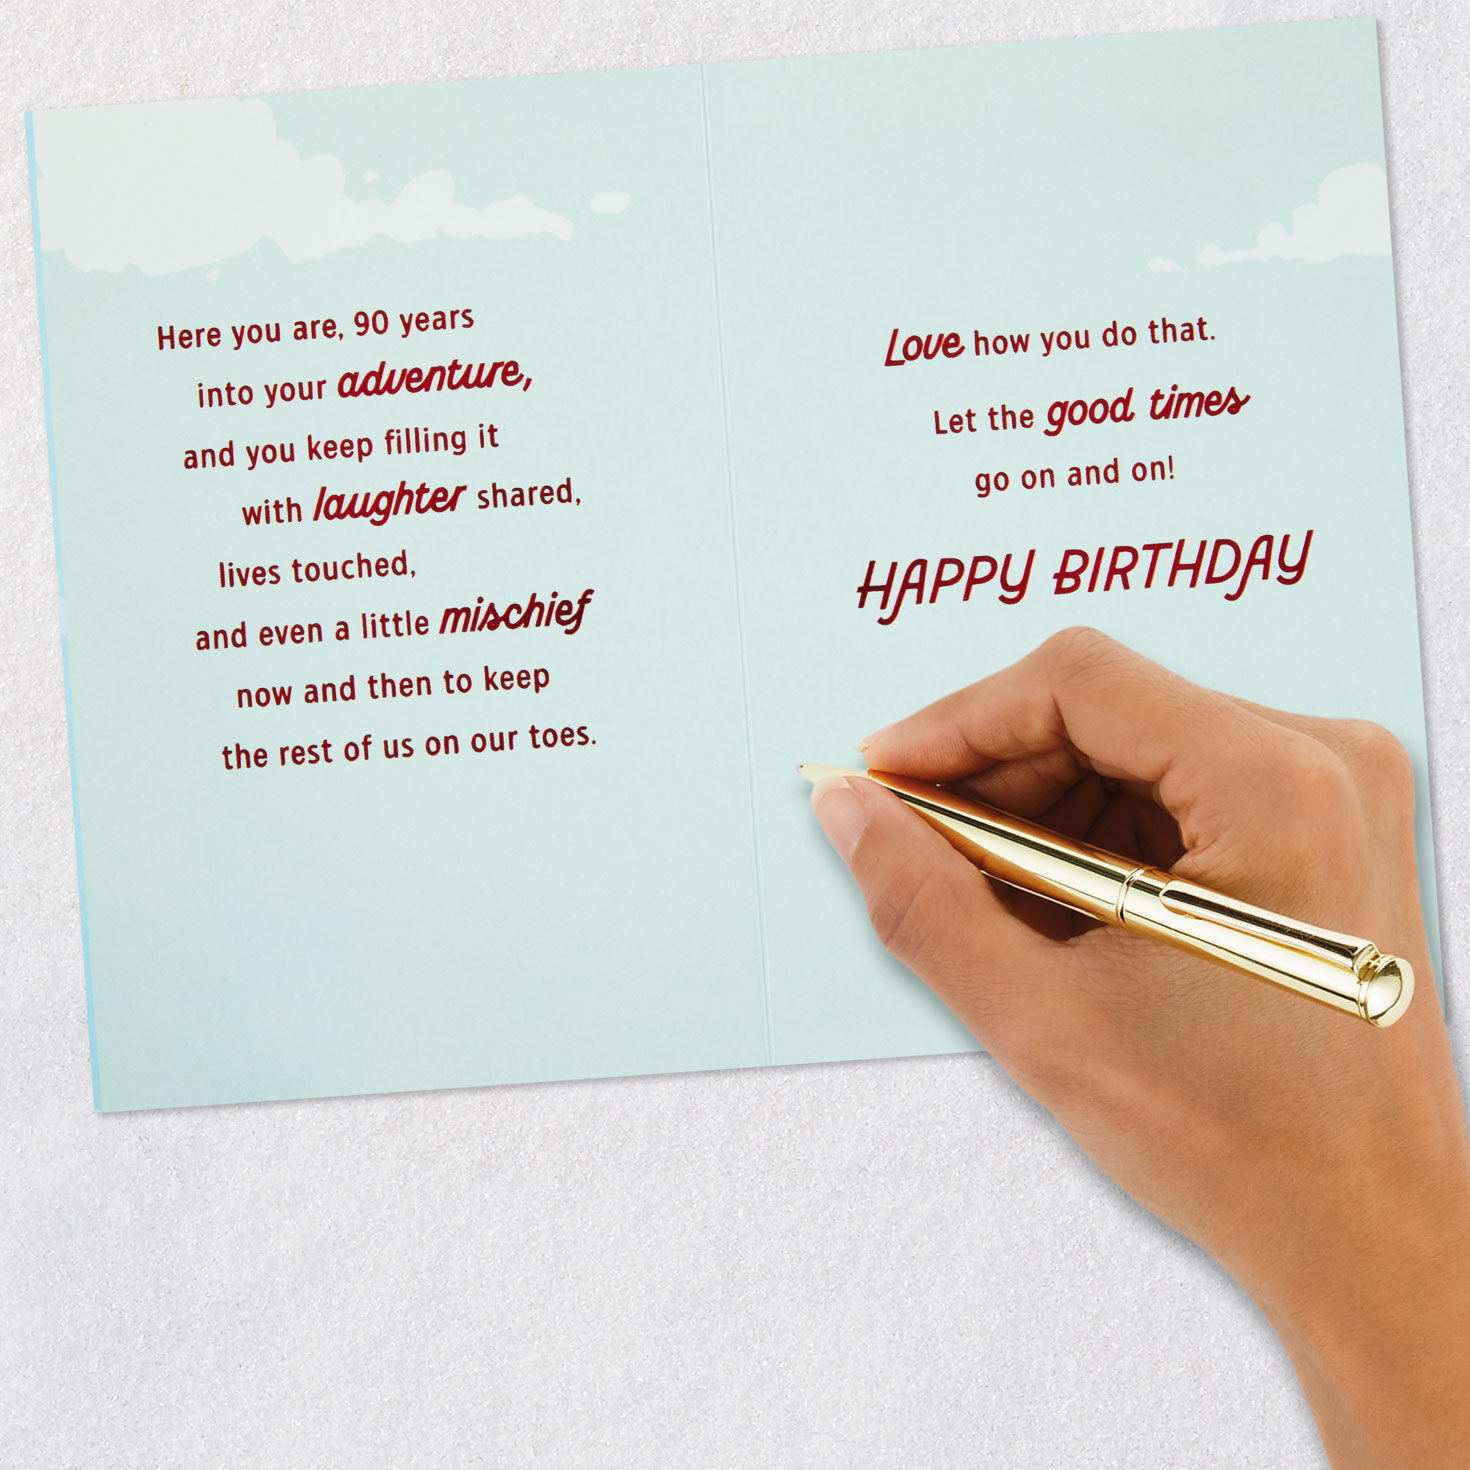 Here you are, 90 years
into your adventure,
and you keep filling it
with laughter shared,
lives touched,
and even a little mischief
now and then to keep
the rest of us on our toes.
Love how you do that.
Let the good times
go on and on!
HAPPY BIRTHDAY